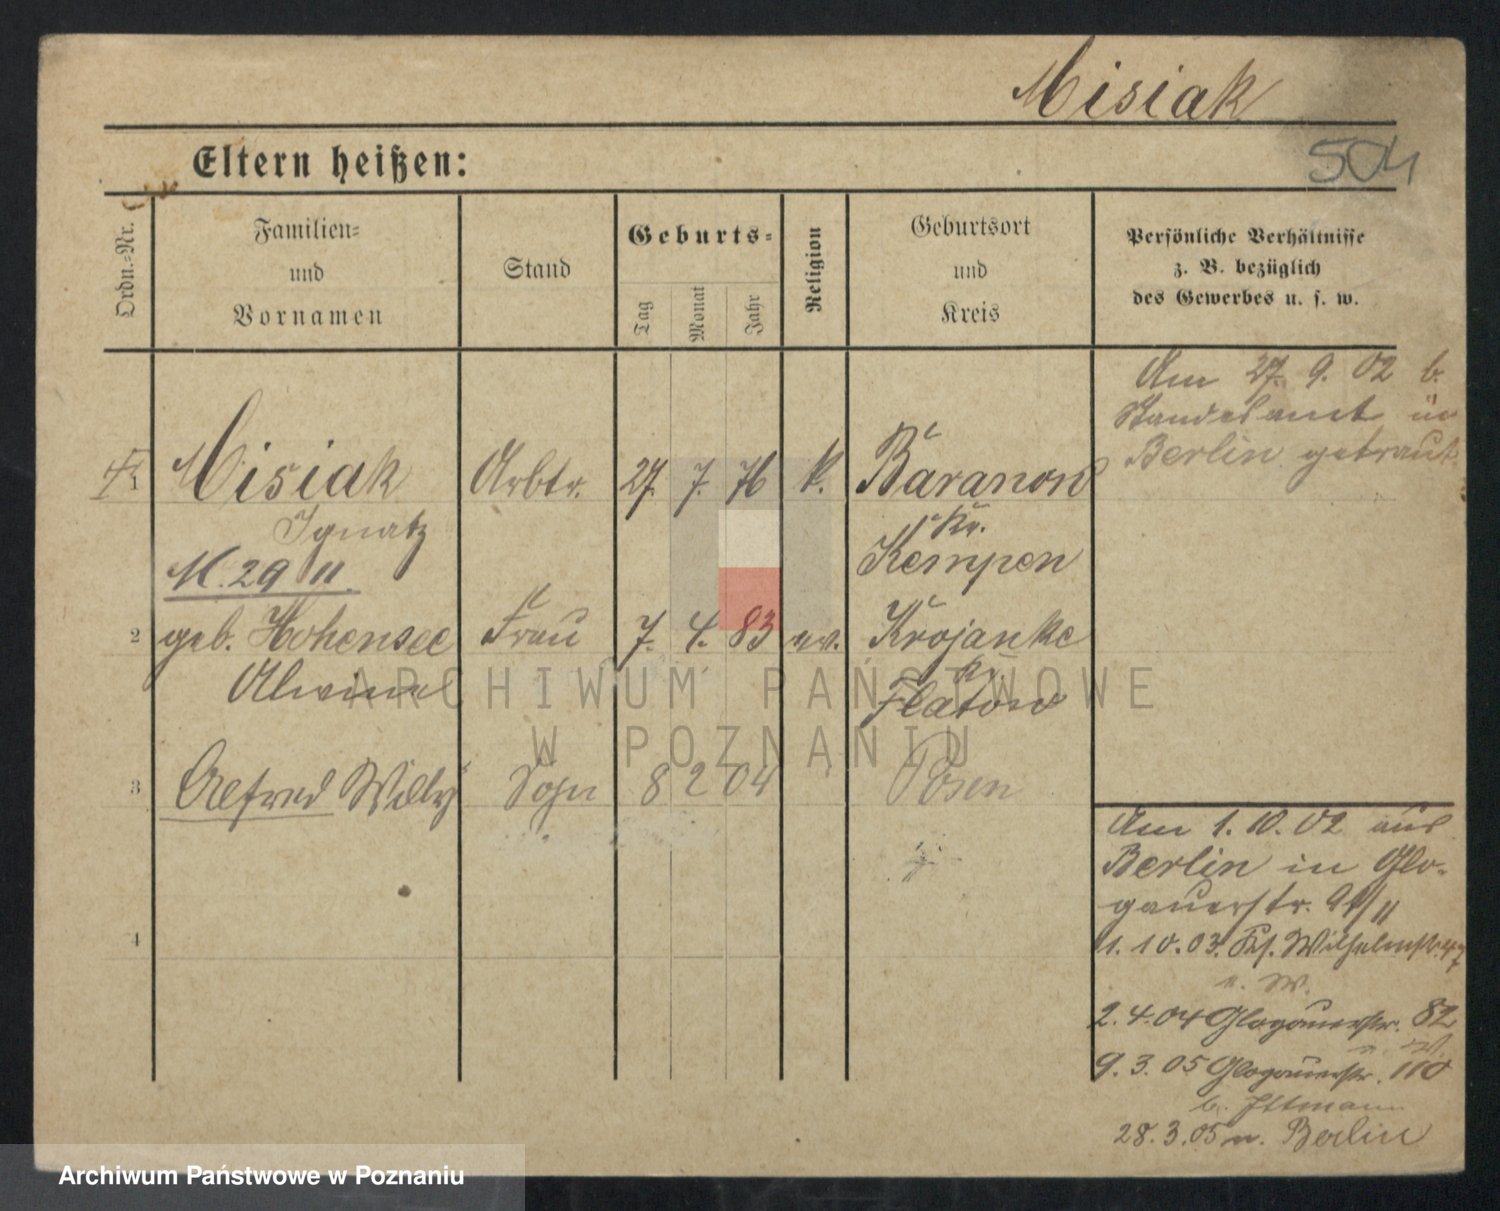 Misiak
504
Eltern heißen:
Ordn.-Nr.
Familien-
und
Vornamen
Stand
Geburts-
Tag
Monat
Jahr
Religion
Geburtsort
und
Kreis
Persönliche Verhältnisse
z. B. bezüglich
des Gewerbes u. s. w.
Am 27. 9. 02 b.
Standesamt in
Berlin getraut.
1 Misiak Arbtr. 27. 7. 76 k. Baranow
Ignatz Kr.
M. 29 11. Kempen
2 geb. Hohensee Frau 7. 4. 83 ev. Krojanke
Alwine Kr.
Flatow
3 Alfred Willy Sohn 8 2 04 Posen
4
Am 1. 10. 02 aus
Berlin in Glo-
gauerstr. 94/II
1. 10. 03. Ks. Wilhelmstr. 47
u. W.
2. 4. 04 Glogauerstr. 82
9. 3. 05 Glogauerstr. 110
b. Ittmann
28. 3. 05 n. Berlin
ARCHIWUM PAŃSTWOWE
W POZNANIU
Archiwum Państwowe w Poznaniu